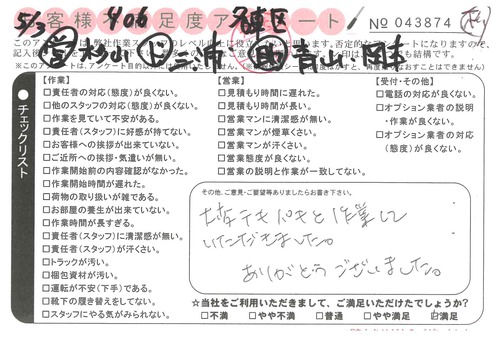 5/31 406 名東区
お客様満足度アンケート No 043874
営 杉山 三浦 青山、岡本
チェックリスト
【作業】
□責任者の対応(態度)が良くない。
□他のスタッフの対応(態度)が良くない。
□作業を見ていて不安がある。
□責任者(スタッフ)に好感が持てない。
□お客様への挨拶が出来ていない。
□ご近所への挨拶・気遣いが無い。
□作業開始前の内容確認がなかった。
□作業開始時間が遅れた。
□荷物の取り扱いが雑である。
□お部屋の養生が出来ていない。
□作業時間が長すぎる。
□責任者(スタッフ)に清潔感が無い。
□責任者(スタッフ)が汗くさい。
□トラックが汚い。
□梱包資材が汚い。
□運転が不安(下手)である。
□靴下の履き替えをしてない。
□スタッフにやる気がみられない。
【営業】
□見積もり時間に遅れた。
□見積もり時間が長い。
□営業マンに清潔感が無い。
□営業マンが煙草くさい。
□営業マンが汗くさい。
□営業態度が良くない。
□営業の説明と作業が一致してない。
【受付・その他】
□電話の対応が良くない。
□オプション業者の説明・作業が良くない。
□オプション業者の対応(態度)が良くない。
その他、ご意見・ご要望等ありましたらお書き下さい。
大変テキパキと作業して
いただきました。
ありがとうございました。
☆当社をご利用いただきまして、ご満足いただけたでしょうか?
□不満 □やや不満 □普通 □やや満足 ☑満足